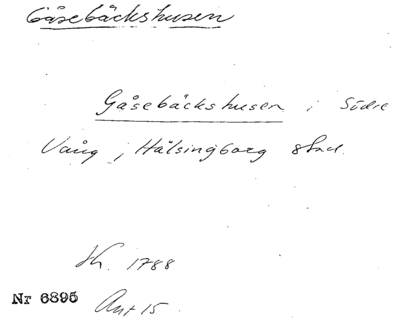 Gåsebäckshusen
Gåsebäckshusen i Södre
Vång, Hälsingborg stad.
Kk. 1788
Nr 6895 Ant 15